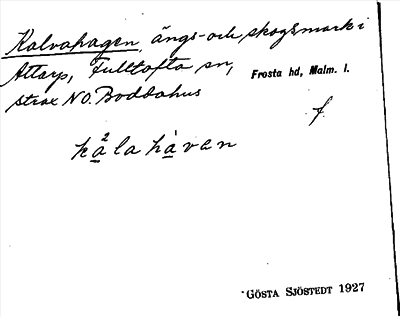 Kalvahagen, ängs- och skogsmark i
Attarp, Fulltofta sn, Frosta hd, Malm. l.
strax NO. Boddahus
f.
kala havan
GÖSTA SJÖSTEDT 1927